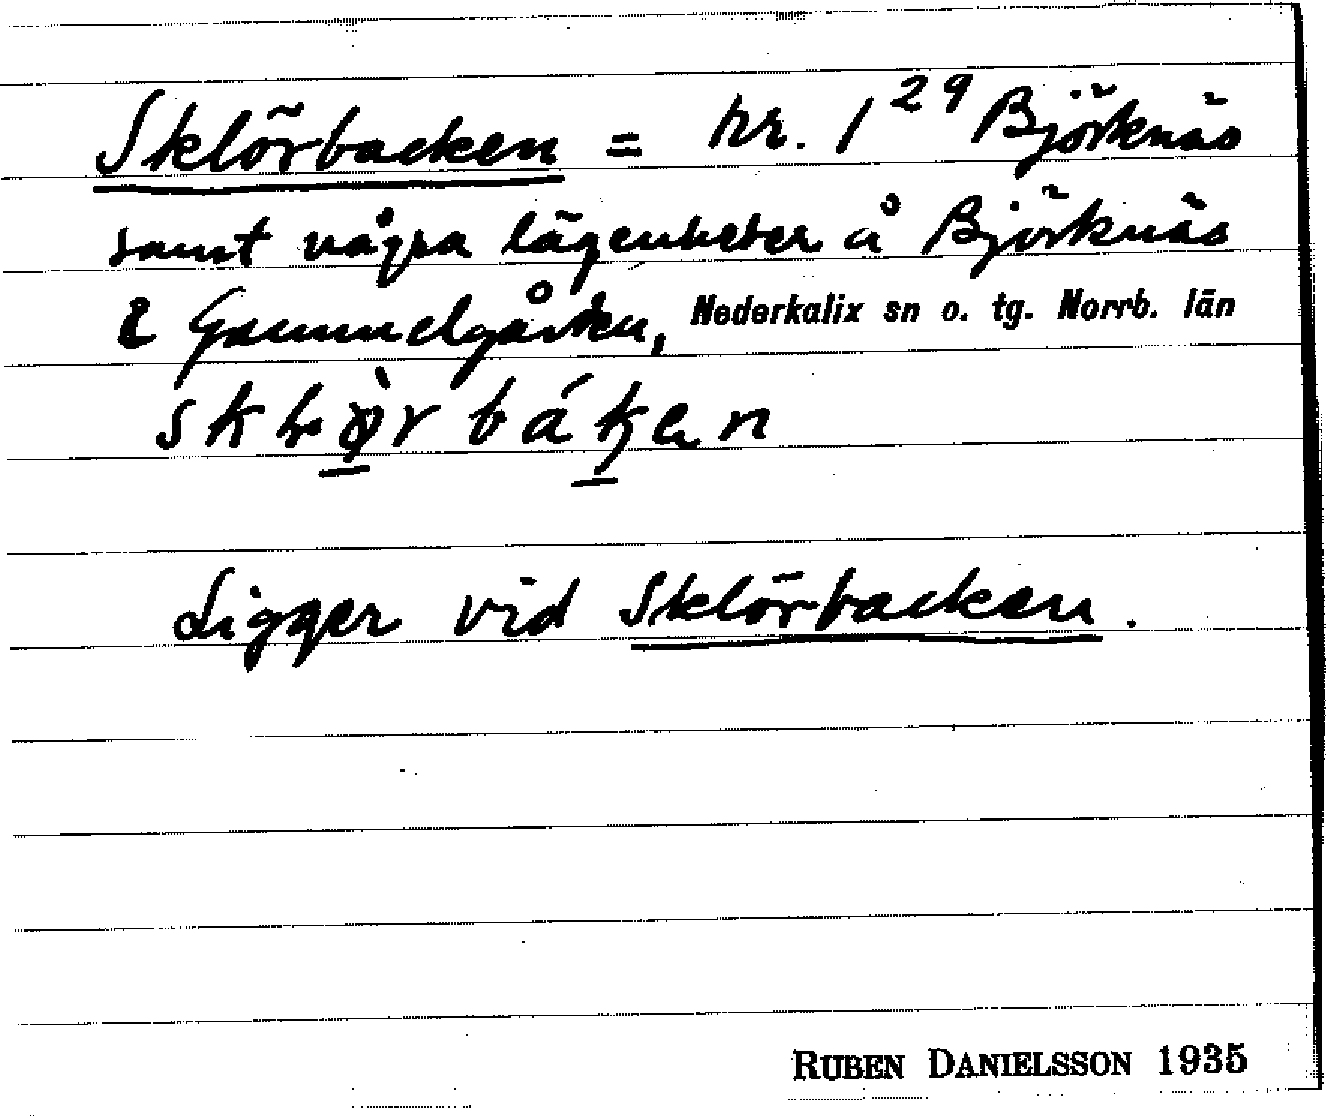 Sklörbacken = nr. 1²⁹ Björknäs
samt några lägenheter å Björknäs
& Gammelgården, Nederkalix sn o. tg. Norrb. län
Ligger vid Sklörbacken.
RUBEN DANIELSSON 1935